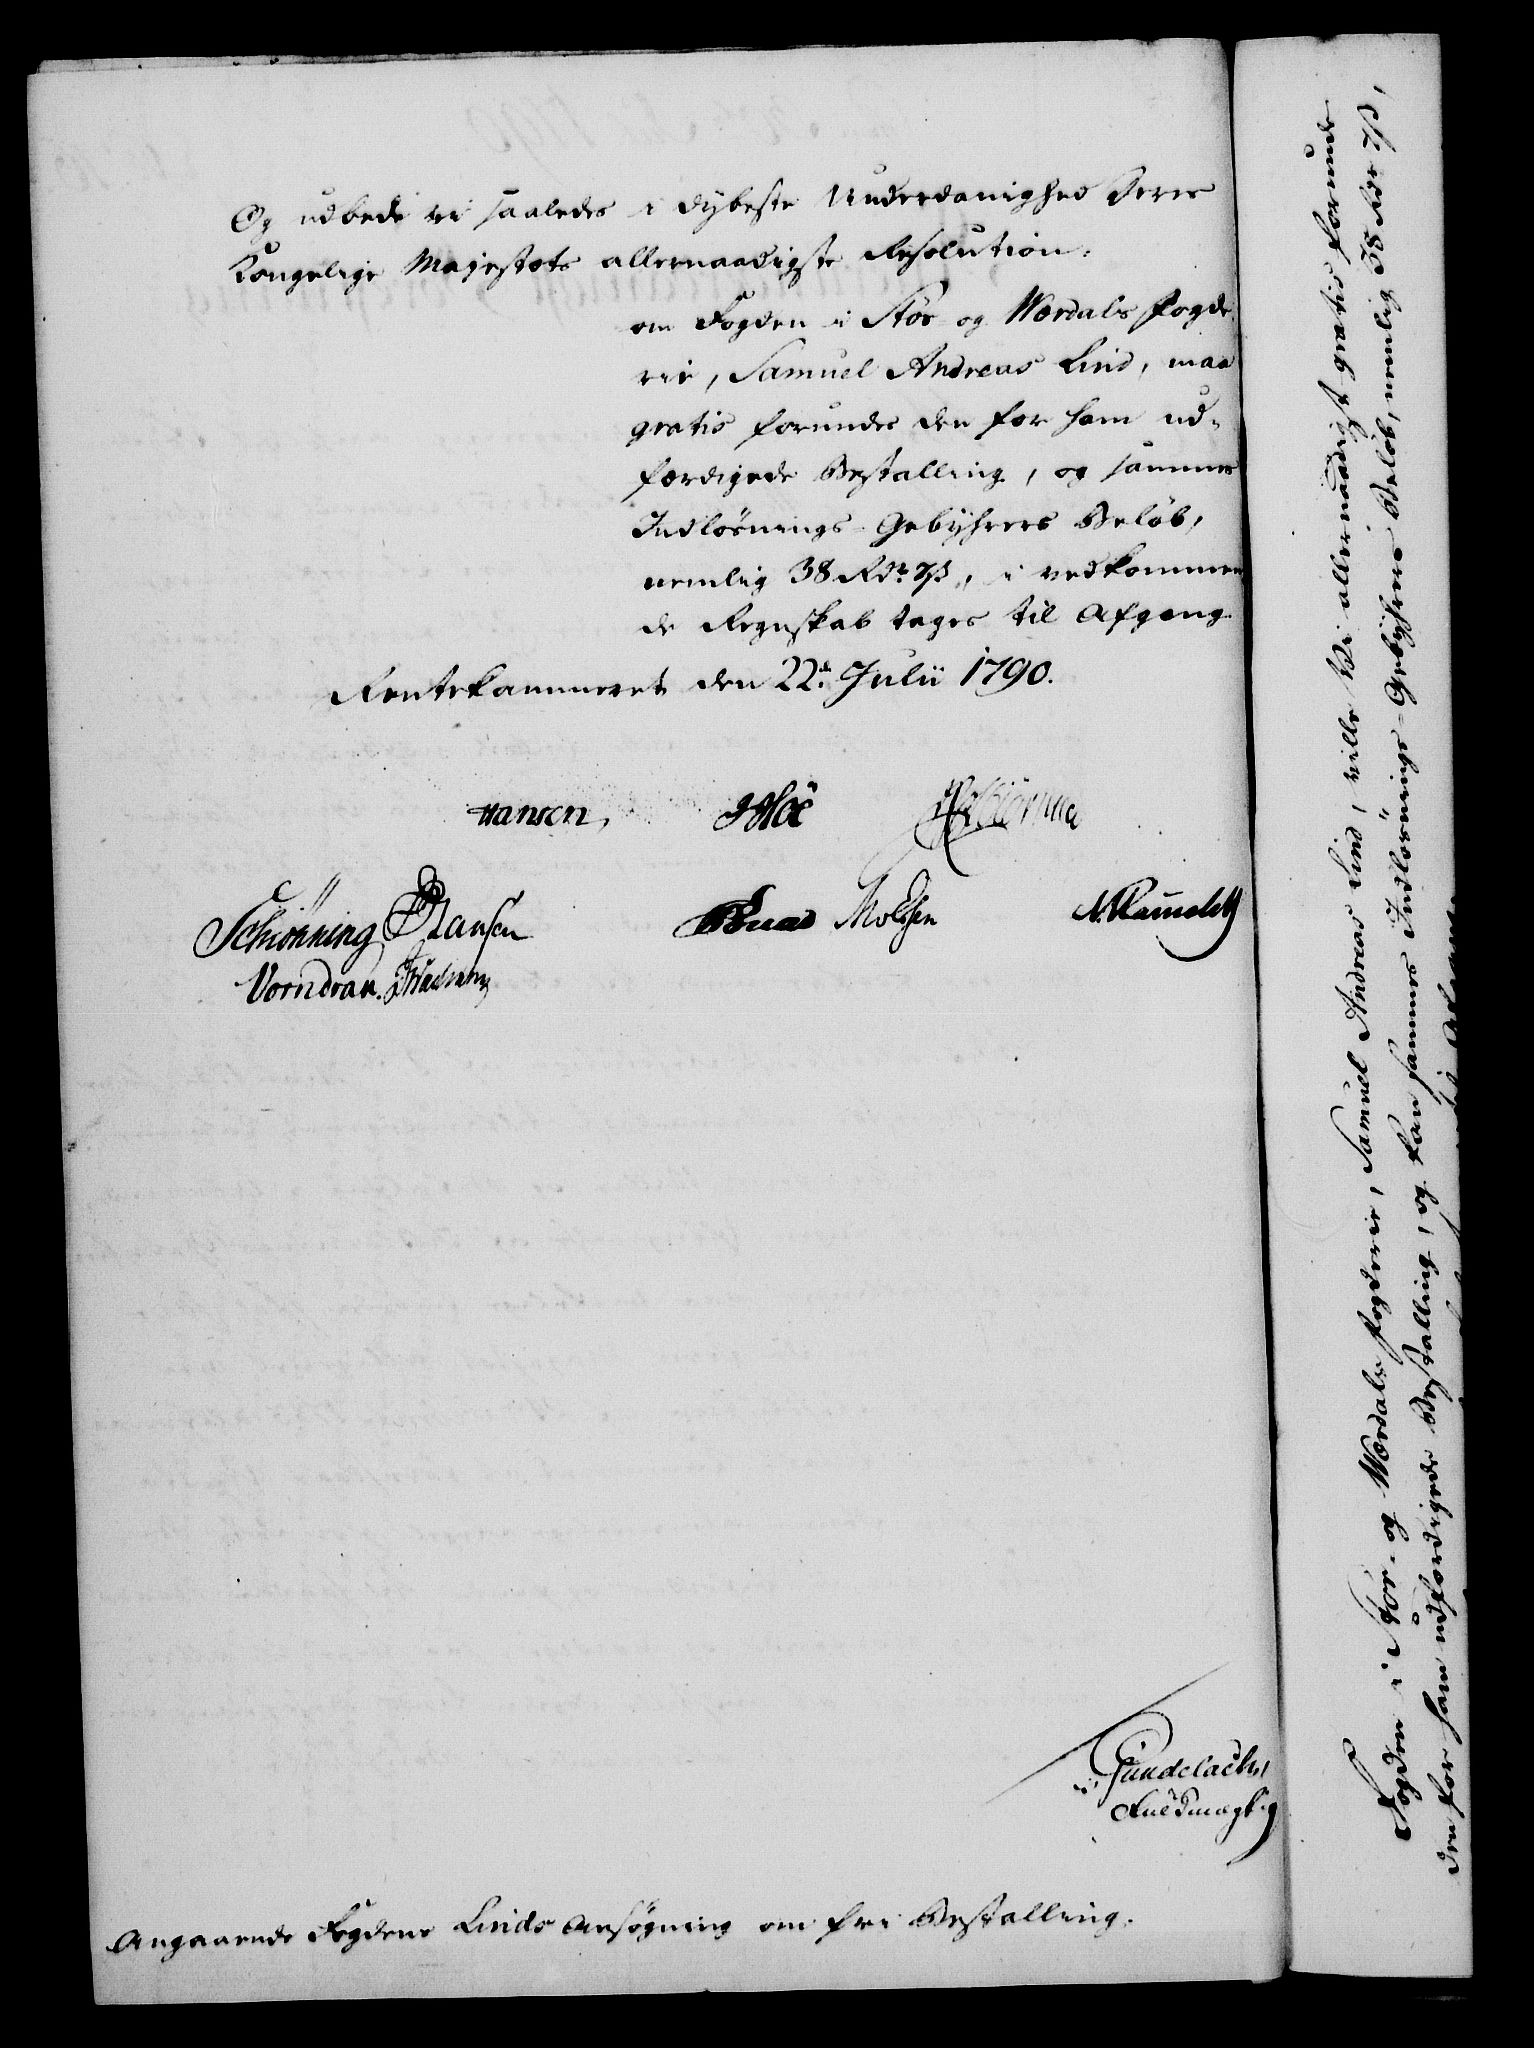 Og udbede vi saaledes i dybeste Underdanighed Deres
Kongelige Majestets allernaadigste Resolution:
om Fogden i Stør og Werdals Fogde-
rie, Samuel Andreas Lind, maa
gratis forundes den for ham ud-
færdigede Bestalling, og sammes
Indløsnings-Gebyhrers Beløb,
nemlig 38 Rdr 7 ß, i vedkommen
de Regnskab tages til Afgang
Rentekammeret den 22de Julii 1790.
Hansen, Høe
Schiønning Hansen Knad Moessen N. Randulff
Vorndran.
Gundelach,
Fuldmægtig
Angaaende Fogdens Linds Ansøgning om fri Bestalling.
Fogden i Stør- og Werdals Fogderie, Samuel Andreas Lind, ville Vi allernaadigst gratis forunde
den for ham udfærdigede Bestalling, og kan sammes Indløsnings-Gebyhrers Beløb, nemlig 38 Rdr 7 ß,